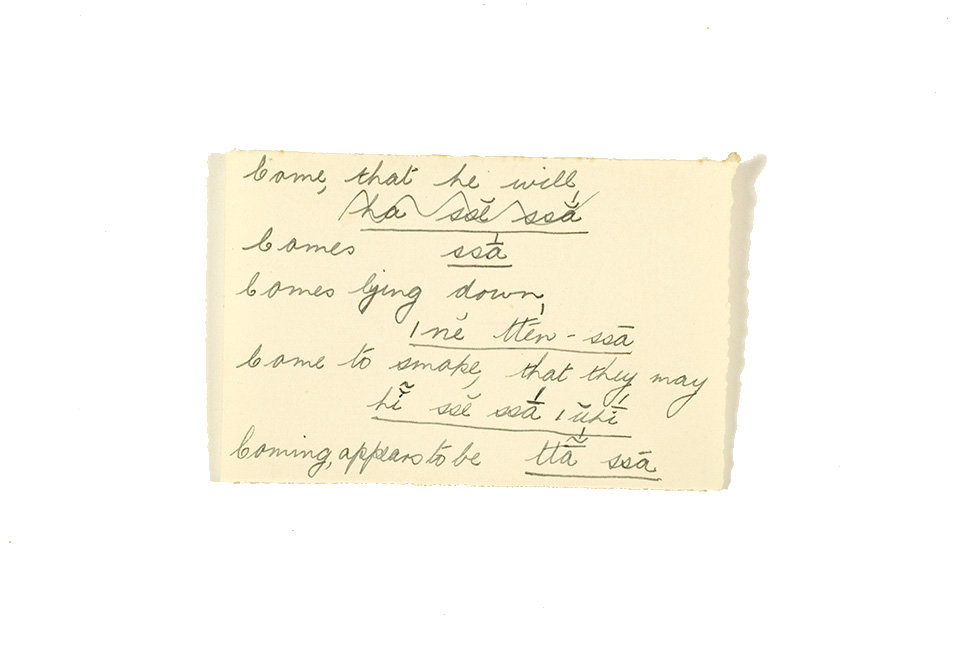 Come, that he will,
ha ssĕ ssă
Comes ssā
Comes lying down,
ˈnĕ ttĕn - ssā
Come to smoke, that they may
hĭ̃ ssĕ ssā ˈŭhī
Coming, appears to be ttā̃ ssā